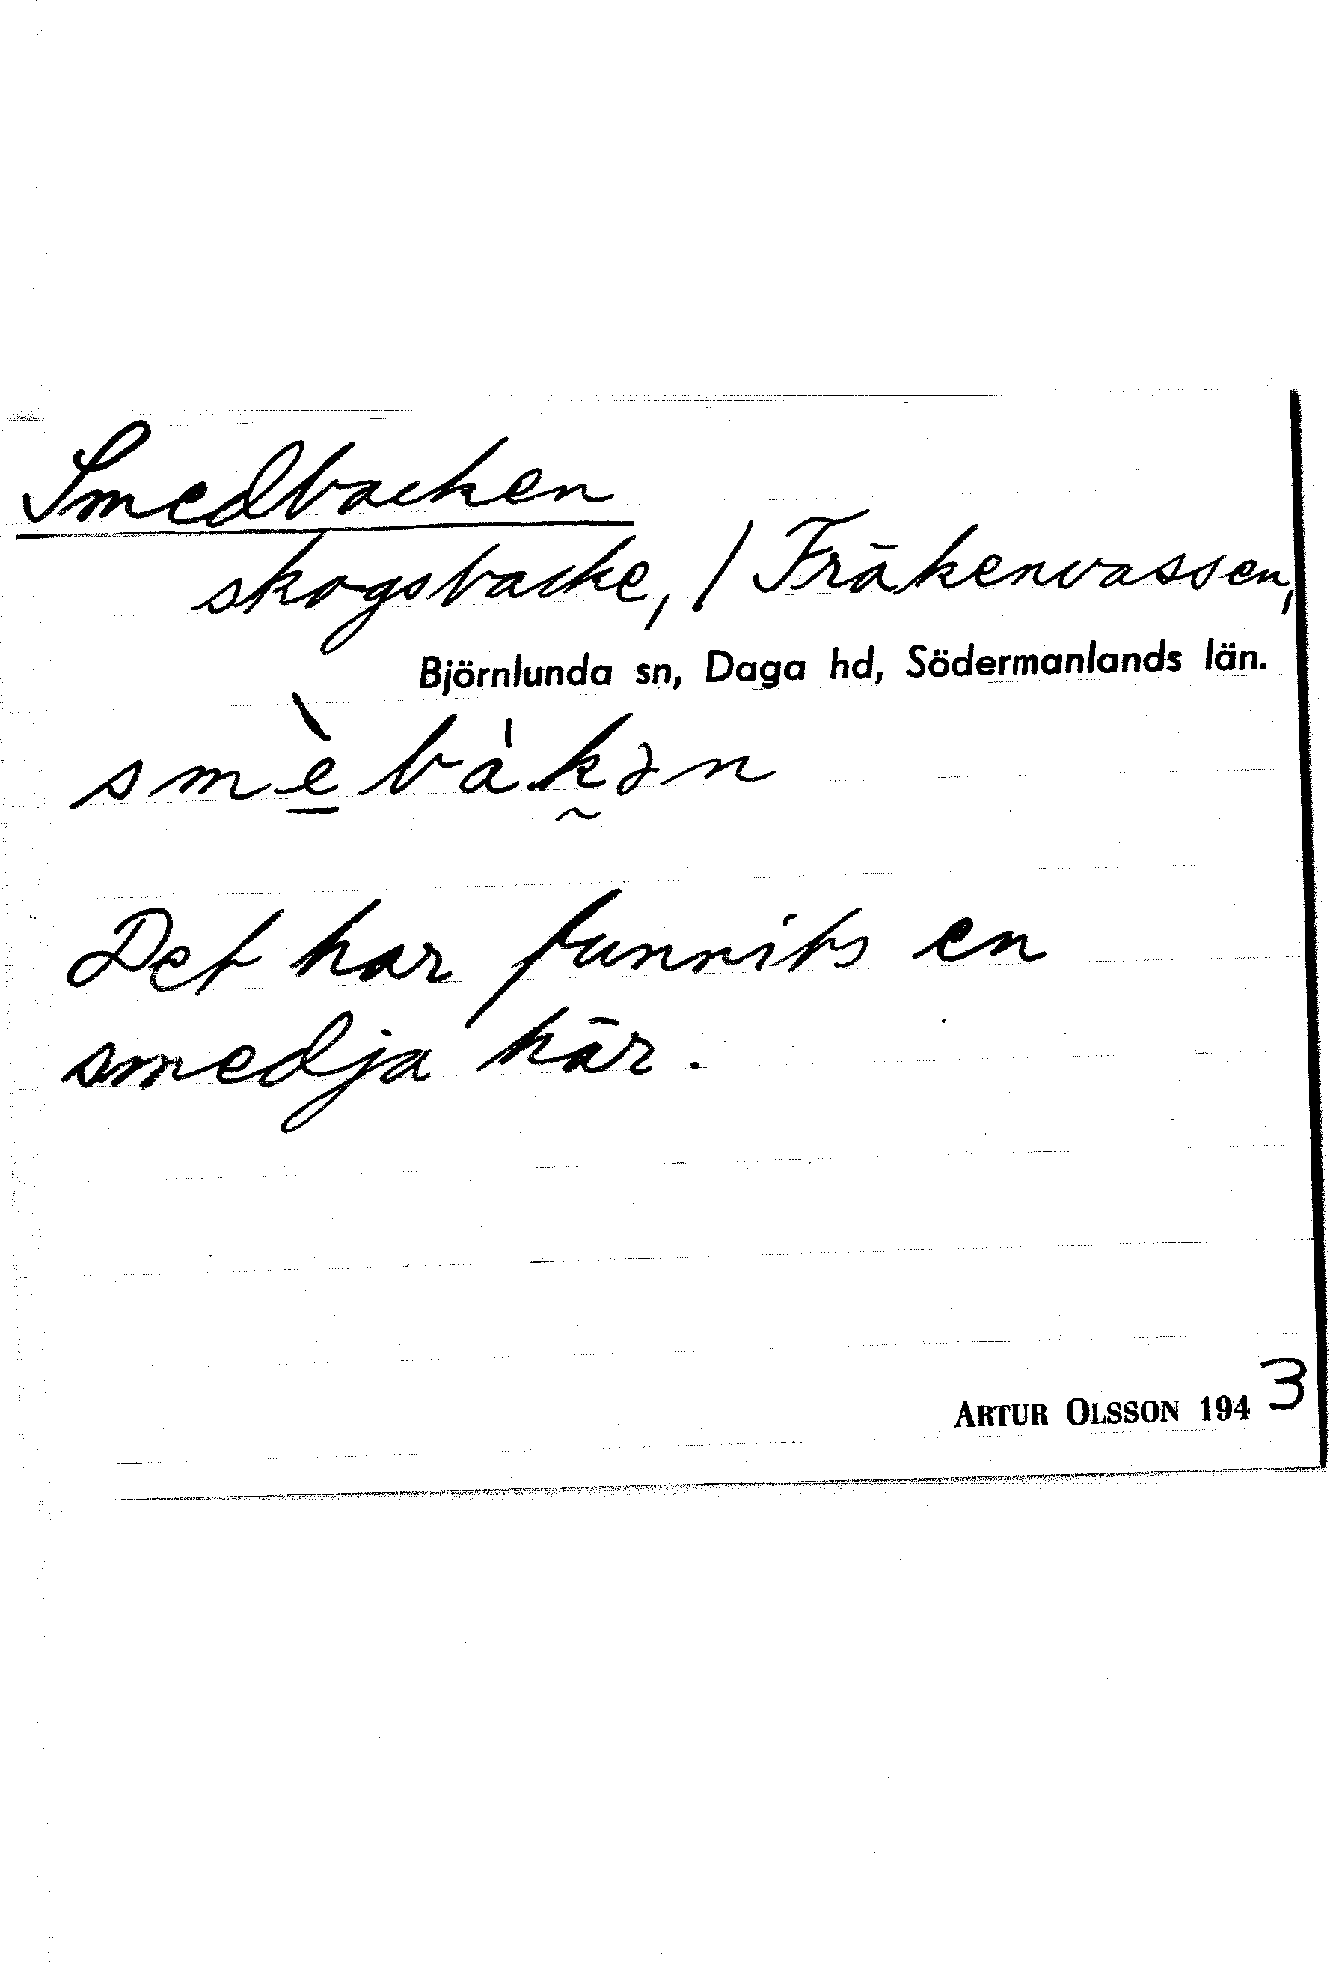 Smedbacken
skogsbacke, / Fräkenvassen,
Björnlunda sn, Daga hd, Södermanlands län.
smè̠bàk̰ən
Det har funnits en
smedja här.
ARTUR OLSSON 1943